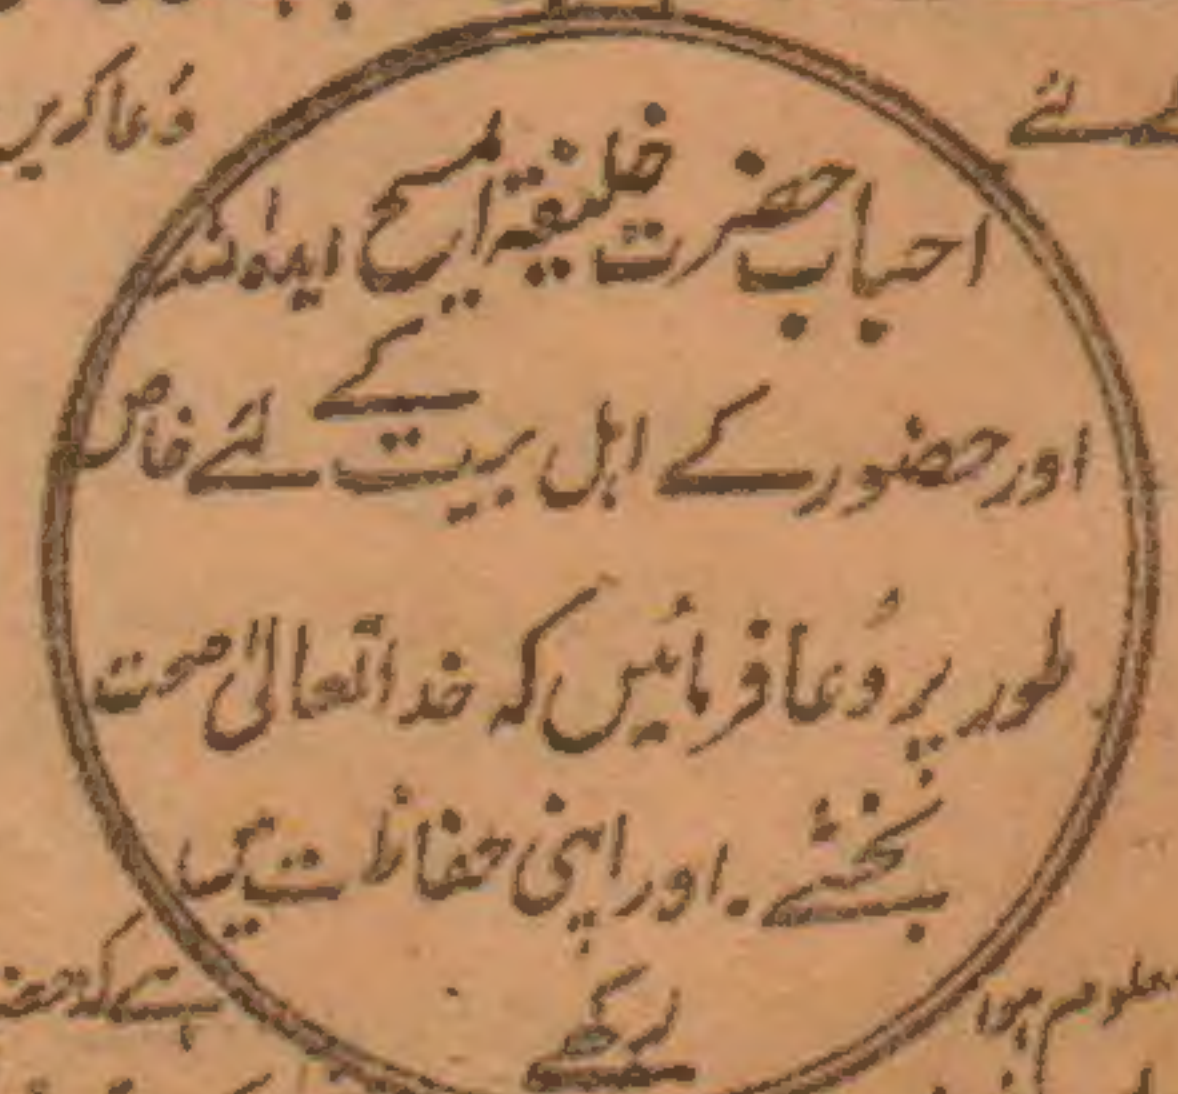 دُعا کریں
لئے
احباب حضرت خلیفۃ المسیح ایدہ اللہ
اور حضور کے اہل بیت کے لئے خاص
طور پر دُعا فرمائیں کہ خدا تعالیٰ صحت
بخشے ۔ اور اپنی حفاظت میں
رکھے
معلوم ہوا
ہے کہ